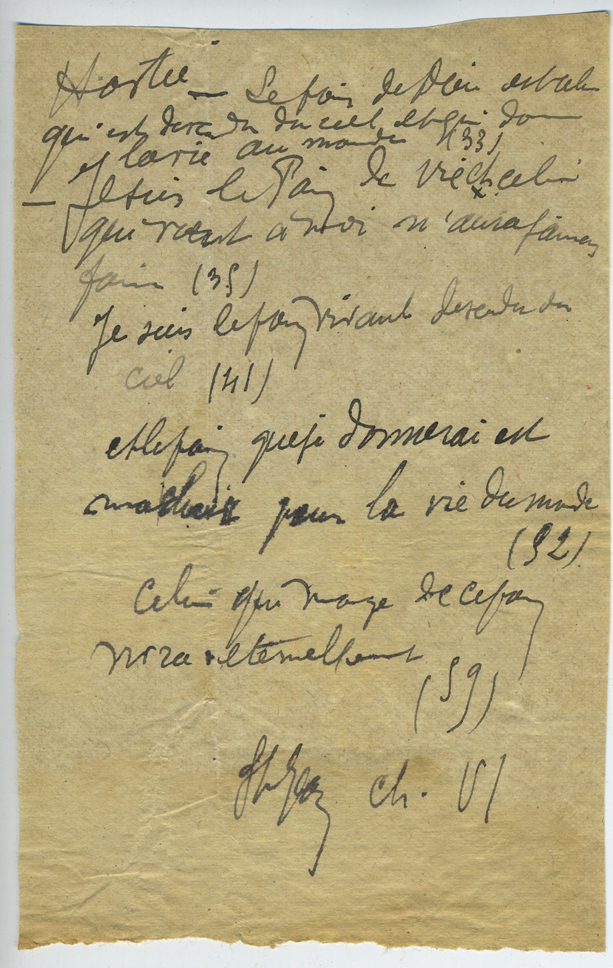 Hostie — Le pain de Dieu est celui
qui est descendu du ciel et qui donne
et la vie au monde (33)
— Je suis le Pain de Vie celui
qui vient à moi n'aura jamais
faim (35)
Je suis le pain vivant descendu du
ciel (41)
et le pain que je donnerai est
ma chair pour la vie du monde
(52)
Celui qui mange de ce pain
vivra éternellement
(59)
St Jean ch. VI